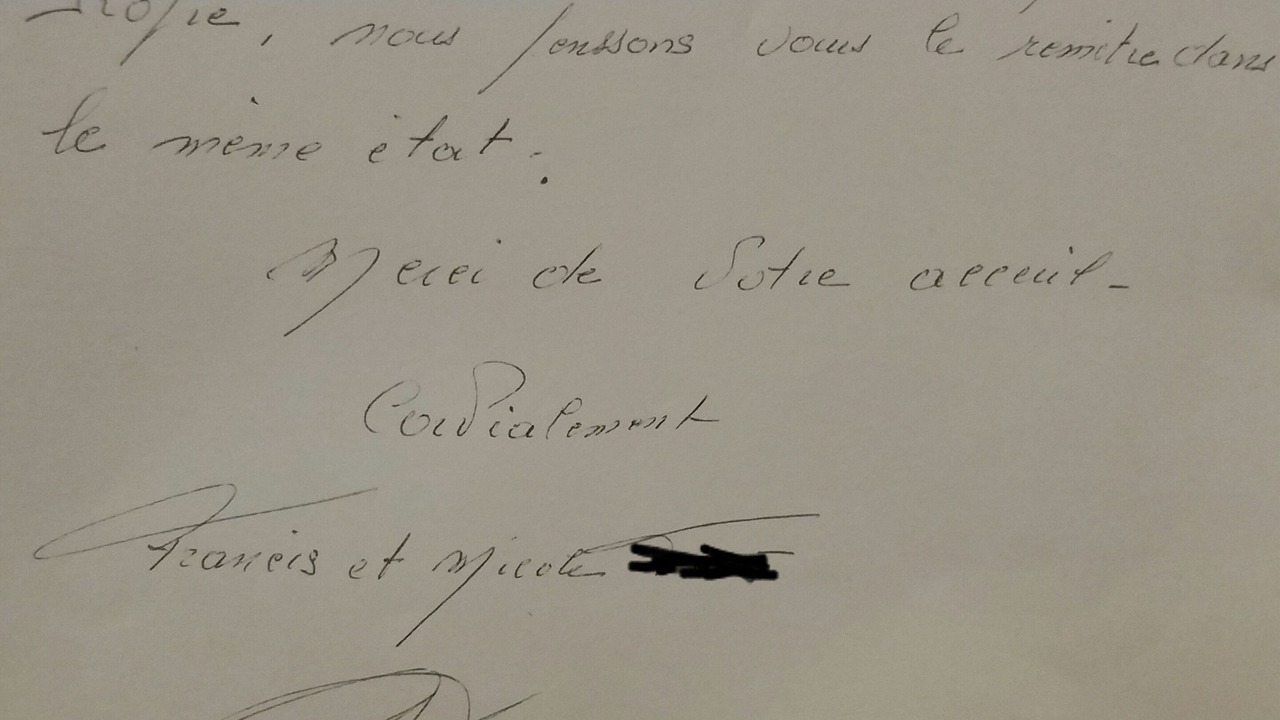 propre, nous pensons vous le remettre dans
le même état.
Merci de Votre acceuil-
Cordialement
Francis et Nicole